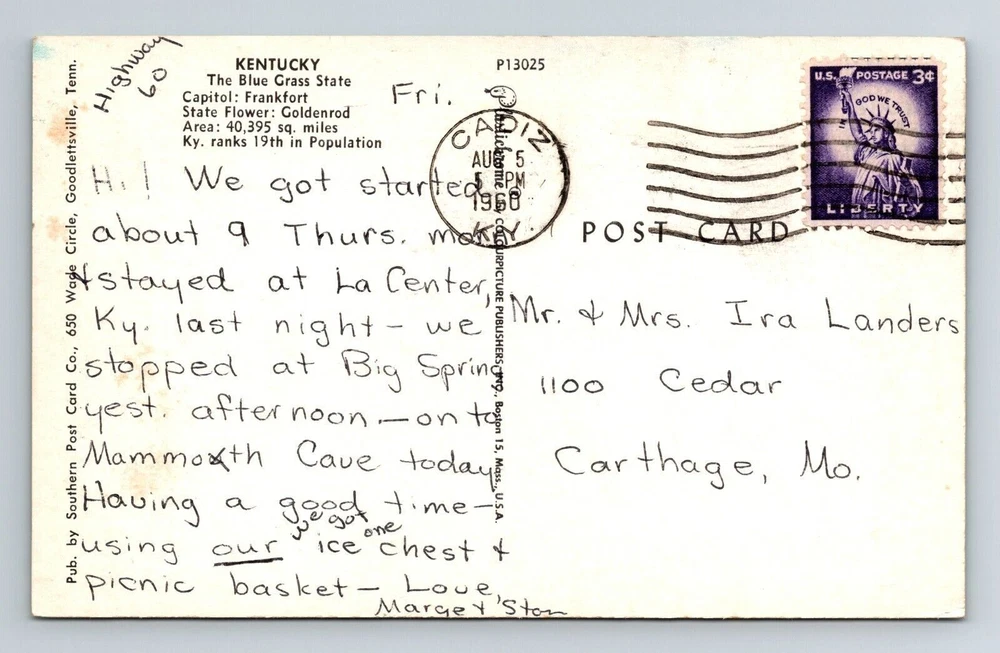 Highway
60
KENTUCKY
The Blue Grass State
Capitol: Frankfort
State Flower: Goldenrod
Area: 40,395 sq. miles
Ky. ranks 19th in Population
P13025
Fri.
Hi! We got started
about 9 Thurs. morn
& stayed at La Center,
Ky. last night – we
stopped at Big Spring
yest. afternoon – on to
Mammoth Cave today
Having a good time –
we got one
using our ice chest &
picnic basket – Love,
Marge & Stan
Pub. by Southern Post Card Co., 650 Wade Circle, Goodlettsville, Tenn.
Plastichrome ® by COLOURPICTURE PUBLISHERS, INC., Boston 15, Mass., U.S.A.
CADIZ
AUG 5
5 PM
1960
KY.
U.S. POSTAGE 3¢
IN GOD WE TRUST
LIBERTY
POST CARD
Mr. & Mrs. Ira Landers
1100 Cedar
Carthage, Mo.